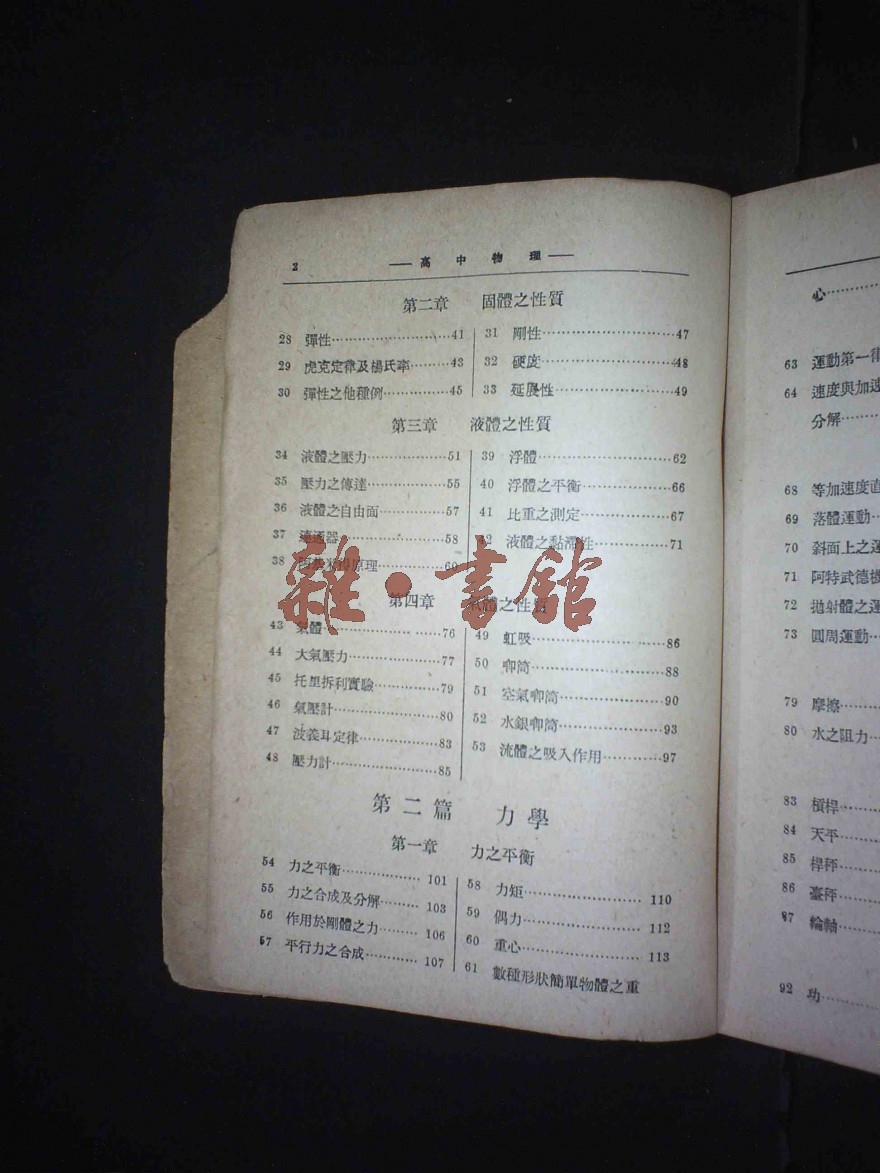 2 ——高中物理——
第二章 固體之性質
28 彈性……41
29 虎克定律及楊氏率……43
30 彈性之他種例……45
31 剛性……47
32 硬度……48
33 延展性……49
第三章 液體之性質
34 液體之壓力……51
35 壓力之傳達……55
36 液體之自由面……57
37 連通器……58
38 原理……60
39 浮體……62
40 浮體之平衡……66
41 比重之測定……67
42 液體之黏滯性……71
雜·書館
第四章 氣體之性質
43 氣體……76
44 大氣壓力……77
45 托里拆利實驗……79
46 氣壓計……80
47 波義耳定律……83
48 壓力計……85
49 虹吸……86
50 唧筒……88
51 空氣唧筒……90
52 水銀唧筒……93
53 流體之吸入作用……97
第二篇 力學
第一章 力之平衡
54 力之平衡……101
55 力之合成及分解……103
56 作用於剛體之力……106
57 平行力之合成……107
58 力矩……110
59 偶力……112
60 重心……113
61 數種形狀簡單物體之重
心……
63 運動第一律
64 速度與加速
分解……
68 等加速度直
69 落體運動…
70 斜面上之運
71 阿特武德機
72 拋射體之運
73 圓周運動…
79 摩擦……
80 水之阻力…
83 槓桿……
84 天平……
85 桿秤……
86 臺秤……
87 輪軸……
92 功……